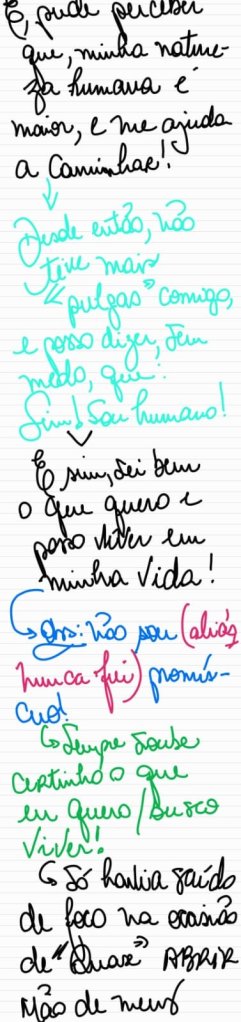 E, pude perceber
que, minha nature-
za humana é
maior, e me ajuda
a Caminhar!
Desde então, não
tive mais
"pulgas" comigo,
e posso dizer, sem
medo, que:
Sim! Sou humano!
E sim, sei bem
o que quero e
posso viver em
minha vida!
Obs: não sou (aliás,
nunca fui) promís-
cuo!
Sempre soube
certinho o que
eu quero/busco
viver!
Só havia saído
de foco na ocasião
de "Quase" ABRIR
Mão de meus